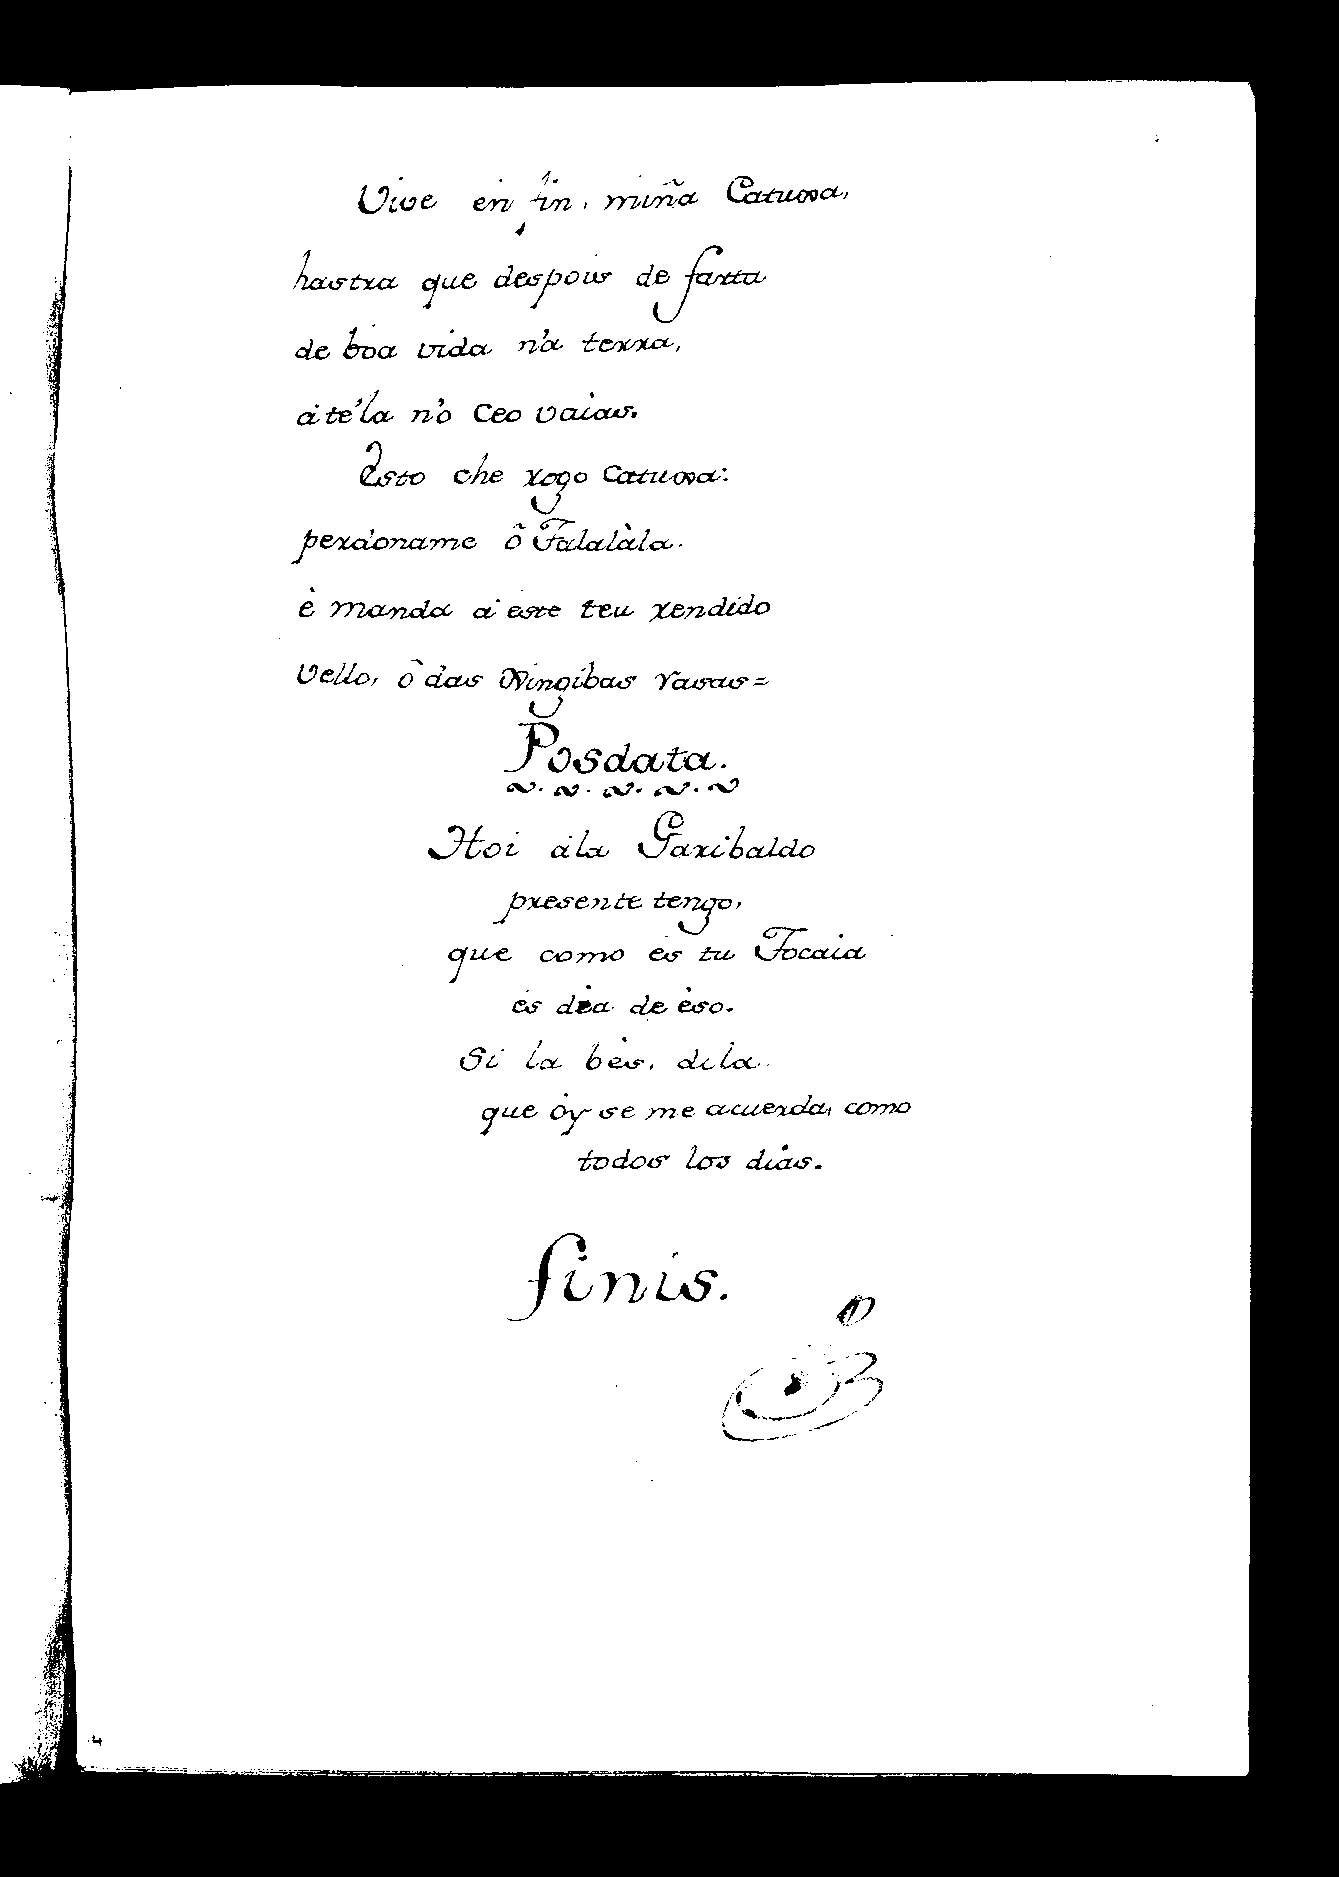 Vive en fin, miña Catuxa,
hastra que despois de farta
de boa vida n'a terra,
á te'la n'o Ceo vaias.
Esto che rogo Catuxa:
perdoname ô Falalàla.
è manda á este teu rendido
Vello, ô das Ningibas rasas=
Posdata.
Hoi á la Garibaldo
presente tengo,
que como es tu Tocaia
es dia de èso.
Si la bès, dila
que òy se me acuerda, como
todos los dias.
finis.